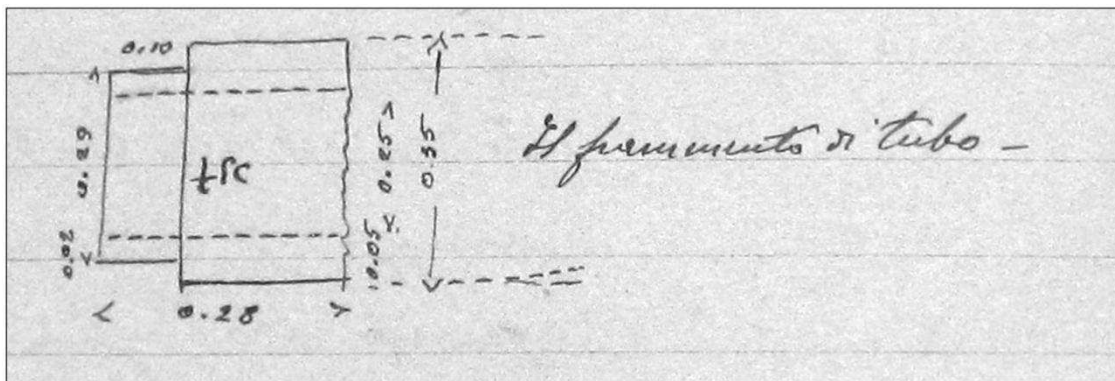 0.10
0.29
0.02
0.28
0.25
0.05
0.35
Il frammento di tubo -